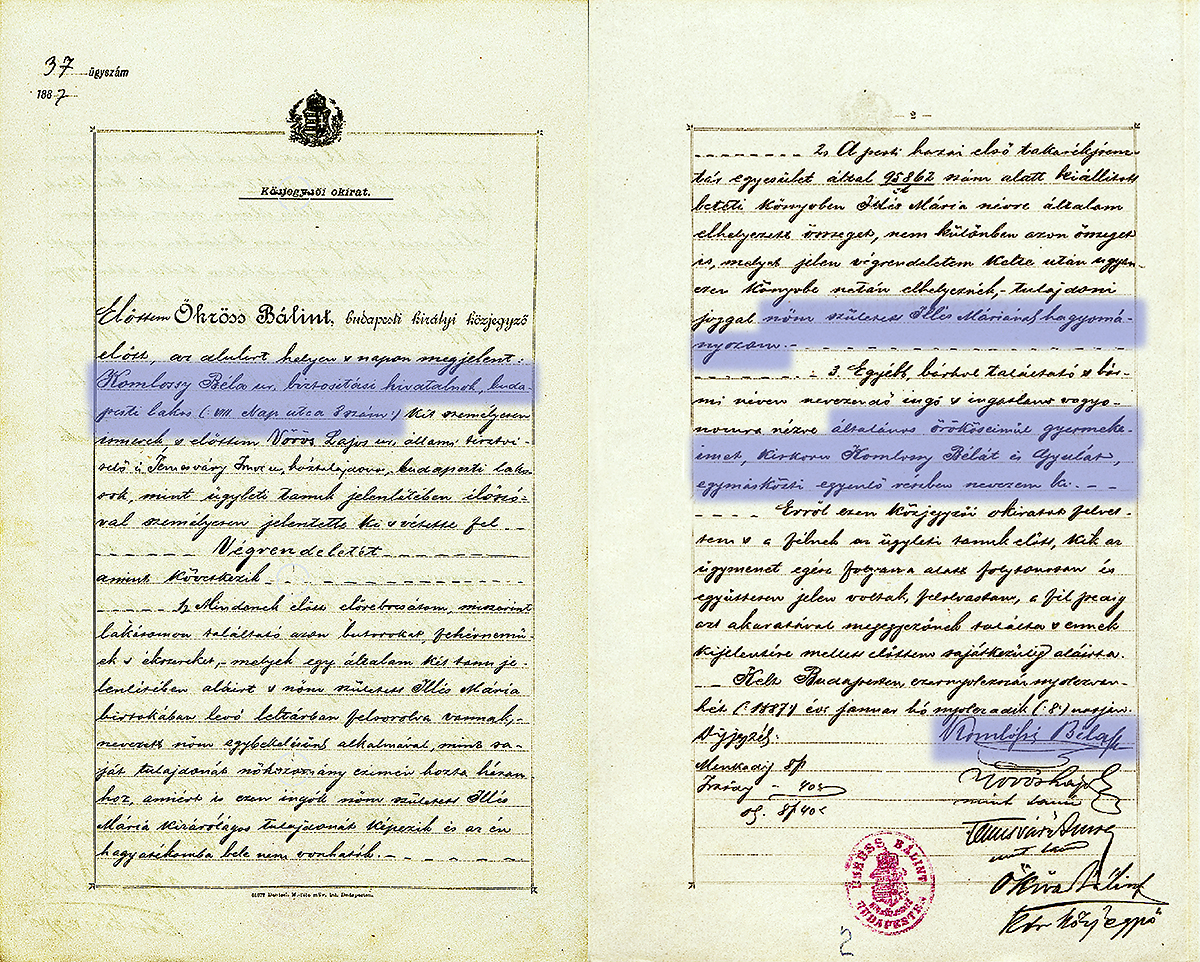 37 ügyszám
1887
Közjegyzői okirat.
Előttem Ökröss Bálint, budapesti királyi közjegyző
előtt, az alulirt helyen s napon megjelent:
Komlossy Béla ur, biztositási hivatalnok, buda-
pesti lakos (: VIII. Nap utca 3 szám :) kit személyesen
ismerek s előttem Vörös Lajos ur, állami tisztvi-
selő és Temesváry Imre ur, háztulajdonos, budapesti lako-
sok, mint ügyleti tanuk jelenlétében élőszó-
val személyesen jelentette ki s vétette fel
Végrendeletét
amint következik
1. Mindenek előtt előrebocsátom, miszerint
lakásomon található azon butorokat, fehérnemü-
ek s ékszereket, melyek egy általam két tanu je-
lenlétében aláirt s nőm született Illés Mária
birtokában levő leltárban felsorolva vannak,
nevezett nőm egybekelésünk alkalmával, mint sa-
ját tulajdonát nőhozomány czimén hozta házam-
hoz, amiért is ezen ingók nőm született Illés
Mária kizárólagos tulajdonát képezik és az én
hagyatékomba bele nem vonhatók.
- 2 -
2. A pesti hazai első takarékpénz-
tár egyesület által 95862 szám alatt kiállitott
betéti könyvben Illés Mária névre általam
elhelyezett összeget, nem különben azon összeget
is, melyet jelen végrendeletem kelte után ugyan-
ezen könyvbe netán elhelyeznék, tulajdoni
joggal nőm született Illés Máriának hagyomá-
nyozom.
3. Egyéb, bárhol található s bár-
mi néven nevezendő ingó s ingatlan vagyo-
nomra nézve általános örököseimül gyermeke-
imet, kiskoru Komlossy Bélát és Gyulát,
egymásközti egyenlő részben nevezem ki.
Erről ezen közjegyzői okiratot felvet-
tem s a félnek az ügyleti tanuk előtt, kik az
ügymenet egész folyama alatt folytonosan és
együttesen jelen voltak, felolvastam, a fél pedig
azt akaratával megegyezőnek találta s ennek
kijelentése mellett előttem sajátkezüleg aláirta.
Kelt Budapesten, ezernyolczszáznyolczvan-
hét (: 1887 :) évi január hó nyolczadik (: 8 :) napján.
Dijjegyzék:
Munkadij 8f
Komlóssy Béla
Vörös Lajos
mint tanu
Temesváry Imre
mint tanu
Ökröss Bálint
kir közjegyző
ÖKRÖSS BÁLINT
BUDAPESTEN